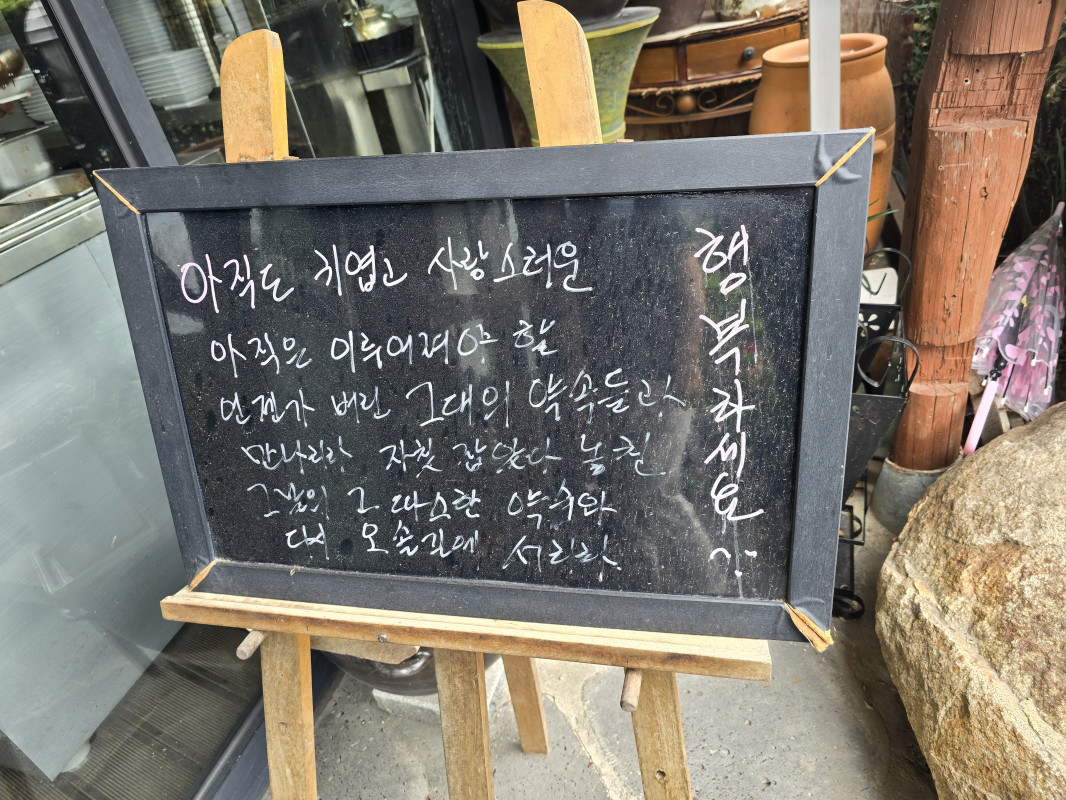 아직도 귀엽고 사랑스러운
아직은 이루어져야 할
언젠가 버린 그대의 약속들과
만나리라 자칫 잡았다 놓친
그날의 그 따스한 악수와
다시 오솔길에 서리라.
행복하세요